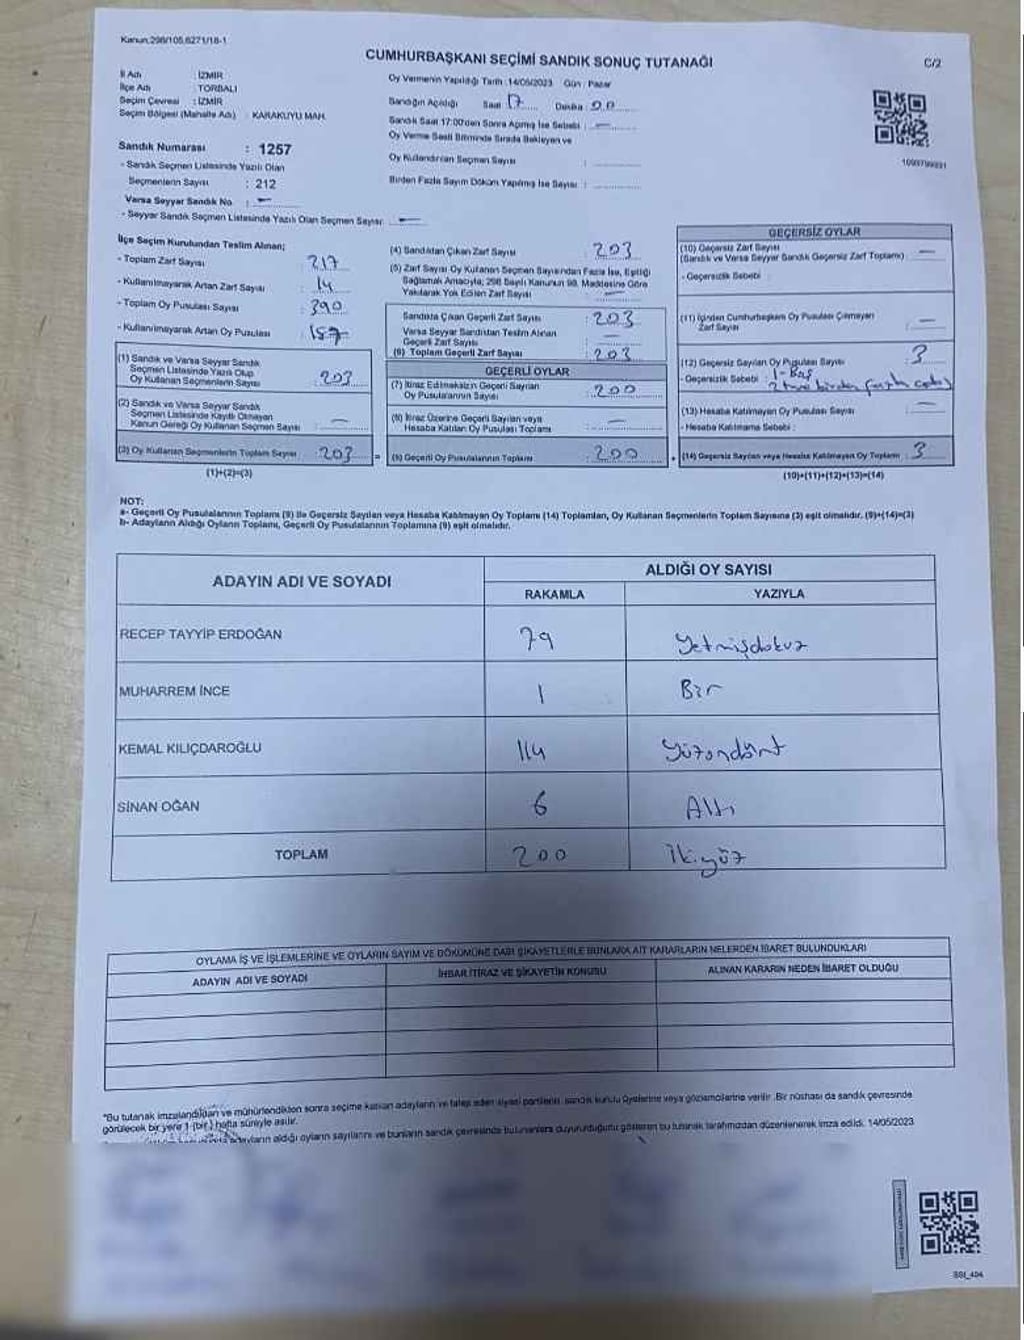 Kanun,298/105,6271/18-1
CUMHURBAŞKANI SEÇİMİ SANDIK SONUÇ TUTANAĞI
C/2
İl Adı : İZMİR
İlçe Adı : TORBALI
Seçim Çevresi : İZMİR
Seçim Bölgesi (Mahalle Adı) : KARAKUYU MAH.
Oy Vermenin Yapıldığı Tarih : 14/05/2023 Gün : Pazar
Sandığın Açıldığı Saat 17 Dakika : 00
Sandık Saat 17:00'den Sonra Açılmış İse Sebebi : —
Oy Verme Saati Bitiminde Sırada Bekleyen ve
Oy Kullandırılan Seçmen Sayısı :
Birden Fazla Sayım Döküm Yapılmış İse Sayısı :
Sandık Numarası : 1257
- Sandık Seçmen Listesinde Yazılı Olan
Seçmenlerin Sayısı : 212
Varsa Seyyar Sandık No : —
- Seyyar Sandık Seçmen Listesinde Yazılı Olan Seçmen Sayısı : —
İlçe Seçim Kurulundan Teslim Alınan;
- Toplam Zarf Sayısı : 217
- Kullanılmayarak Artan Zarf Sayısı : 14
- Toplam Oy Pusulası Sayısı : 390
- Kullanılmayarak Artan Oy Pusulası : 187
(1) Sandık ve Varsa Seyyar Sandık
Seçmen Listesinde Yazılı Olup
Oy Kullanan Seçmenlerin Sayısı : 203
(2) Sandık ve Varsa Seyyar Sandık
Seçmen Listesinde Kayıtlı Olmayan
Kanun Gereği Oy Kullanan Seçmen Sayısı : —
(3) Oy Kullanan Seçmenlerin Toplam Sayısı : 203 =
(1)+(2)=(3)
(4) Sandıktan Çıkan Zarf Sayısı : 203
(5) Zarf Sayısı Oy Kullanan Seçmen Sayısından Fazla İse, Eşitliği
Sağlamak Amacıyla; 298 Sayılı Kanunun 98. Maddesine Göre
Yakılarak Yok Edilen Zarf Sayısı : —
Sandıkta Çıkan Geçerli Zarf Sayısı : 203
Varsa Seyyar Sandıktan Teslim Alınan
Geçerli Zarf Sayısı : —
(6) Toplam Geçerli Zarf Sayısı : 203
GEÇERLİ OYLAR
(7) İtiraz Edilmeksizin Geçerli Sayılan
Oy Pusulalarının Sayısı : 200
(8) İtiraz Üzerine Geçerli Sayılan veya
Hesaba Katılan Oy Pusulası Toplamı : —
(9) Geçerli Oy Pusulalarının Toplamı : 200 +
GEÇERSİZ OYLAR
(10) Geçersiz Zarf Sayısı
(Sandık ve Varsa Seyyar Sandık Geçersiz Zarf Toplamı) : —
- Geçersizlik Sebebi :
(11) İçinden Cumhurbaşkanı Oy Pusulası Çıkmayan
Zarf Sayısı : —
(12) Geçersiz Sayılan Oy Pusulası Sayısı : 3
- Geçersizlik Sebebi : 1-Boş
2 tane birden fazla
(13) Hesaba Katılmayan Oy Pusulası Sayısı : —
- Hesaba Katılmama Sebebi :
(14) Geçersiz Sayılan veya Hesaba Katılmayan Oy Toplamı : 3
(10)+(11)+(12)+(13)=(14)
NOT:
a- Geçerli Oy Pusulalarının Toplamı (9) ile Geçersiz Sayılan veya Hesaba Katılmayan Oy Toplamı (14) Toplamları, Oy Kullanan Seçmenlerin Toplam Sayısına (3) eşit olmalıdır. (9)+(14)=(3)
b- Adayların Aldığı Oyların Toplamı, Geçerli Oy Pusulalarının Toplamına (9) eşit olmalıdır.
ADAYIN ADI VE SOYADI
ALDIĞI OY SAYISI
RAKAMLA YAZIYLA
RECEP TAYYİP ERDOĞAN 79 Yetmişdokuz
MUHARREM İNCE 1 Bir
KEMAL KILIÇDAROĞLU 114 Yüzondört
SİNAN OĞAN 6 Altı
TOPLAM 200 İkiyüz
OYLAMA İŞ VE İŞLEMLERİNE VE OYLARIN SAYIM VE DÖKÜMÜNE DAİR ŞİKAYETLERLE BUNLARA AİT KARARLARIN NELERDEN İBARET BULUNDUKLARI
ADAYIN ADI VE SOYADI İHBAR İTİRAZ VE ŞİKAYETİN KONUSU ALINAN KARARIN NEDEN İBARET OLDUĞU
*Bu tutanak imzalandıktan ve mühürlendikten sonra seçime katılan adayların ve talep eden siyasi partilerin sandık kurulu üyelerine veya gözlemcilerine verilir. Bir nüshası da sandık çevresinde
görülecek bir yere 1 (bir) hafta süreyle asılır.
adayların aldığı oyların sayılarını ve bunların sandık çevresinde bulunanlara duyurulduğunu gösteren bu tutanak tarafımızdan düzenlenerek imza edildi. 14/05/2023